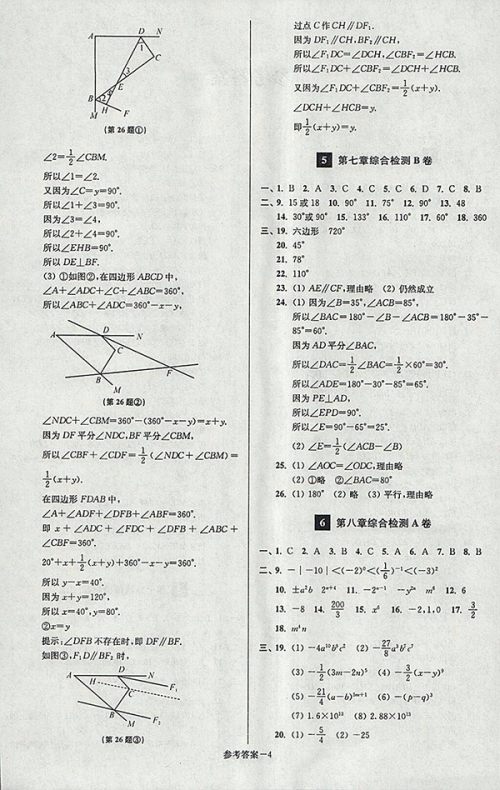 A D N
1
C
3
E
B 2 4
H F
M
(第26题①)
∠2=1/2∠CBM.
所以∠1=∠2.
又因为∠C=y=90°.
所以∠1+∠3=90°.
因为∠3=∠4,
所以∠2+∠4=90°.
所以∠EHB=90°.
所以DE⊥BF.
(3) ①如图②,在四边形ABCD中,
∠A+∠ADC+∠C+∠ABC=360°,
所以∠ABC+∠ADC=360°-x-y,
A D N
C
B F
M
(第26题②)
∠NDC+∠CBM=360°-(360°-x-y)=x+y.
因为DF平分∠NDC,BF平分∠CBM,
所以∠CBF+∠CDF=1/2(∠NDC+∠CBM)=
1/2(x+y).
在四边形FDAB中,
∠A+∠ADF+∠DFB+∠ABF=360°.
即x+∠ADC+∠FDC+∠DFB+∠ABC+
∠CBF=360°.
20°+x+1/2(x+y)+360°-x-y=360°.
所以y-x=40°.
因为x+y=120°,
所以x=40°,y=80°.
②x=y
提示:∠DFB不存在时,即DF∥BF.
如图③,F₁D∥BF₂时,
A D N
H F₁
C
B F₂
M
(第26题③)
过点C作CH∥DF₁.
因为DF₁∥CH,BF₂∥CH,
所以∠F₁DC=∠DCH,∠CBF₂=∠HCB.
所以∠F₁DC+∠CBF₂=∠DCH+∠HCB.
又因为∠F₁DC+∠CBF₂=1/2(x+y).
∠DCH+∠HCB=y.
即1/2(x+y)=y.
5 第七章综合检测B卷
一、1. B 2. A 3. C 4. C 5. C 6. D 7. C 8. B
二、9. 15或18 10. 90° 11. 75° 12. 90° 13. 48
14. 30°或90° 15. 133° 16. 110° 17. 60° 18. 360
三、19. 六边形 720°
20. 45°
21. 78°
22. 110°
23. (1) AE∥CF,理由略 (2) 仍然成立
24. (1) 因为∠B=35°,∠ACB=85°,
所以∠BAC=180°-∠B-∠ACB=180°-35°-
85°=60°.
因为AD平分∠BAC,
所以∠DAC=1/2∠BAC=1/2×60°=30°.
所以∠ADE=180°-30°-85°=65°.
因为PE⊥AD,
所以∠EPD=90°.
所以∠E=90°-65°=25°.
(2) ∠E=1/2(∠ACB-∠B)
25. (1) ∠AOC=∠ODC,理由略
(2) ①略 ②∠BAC=80°
26. (1) 180° (2) 略 (3) 平行,理由略
6 第八章综合检测A卷
一、1. C 2. A 3. C 4. A 5. A 6. A 7. B 8. B
二、9. -|-10|<(-2)⁰<(1/6)⁻¹<(-3)²
12. 6
13. -8 14. 200/3 16. -2,1,0 17. 3/2
三、19.
(7) 1.6×10¹⁰ (8) 2.88×10¹³
20. (1) -5/4 (2) -25
参考答案-4